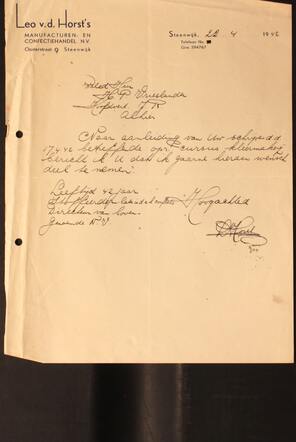 Leo v.d. Horst's
MANUFACTUREN EN
CONFECTIEHANDEL N.V.
Oosterstraat 9 Steenwijk
Steenwijk, 22-4 1942
Telefoon No.
Giro 394767
H. P. Vrieslander
Alhier
Naar aanleiding van Uw schrijven d.d.
17.4.42 betreffende opr. cursus kleermakerij
bericht ik U dat ik gaarne hieraan wensch
deel te nemen.
Leeftijd 42 jaar
Hoogachtend
Directeur van boven-
genoemde N.V.